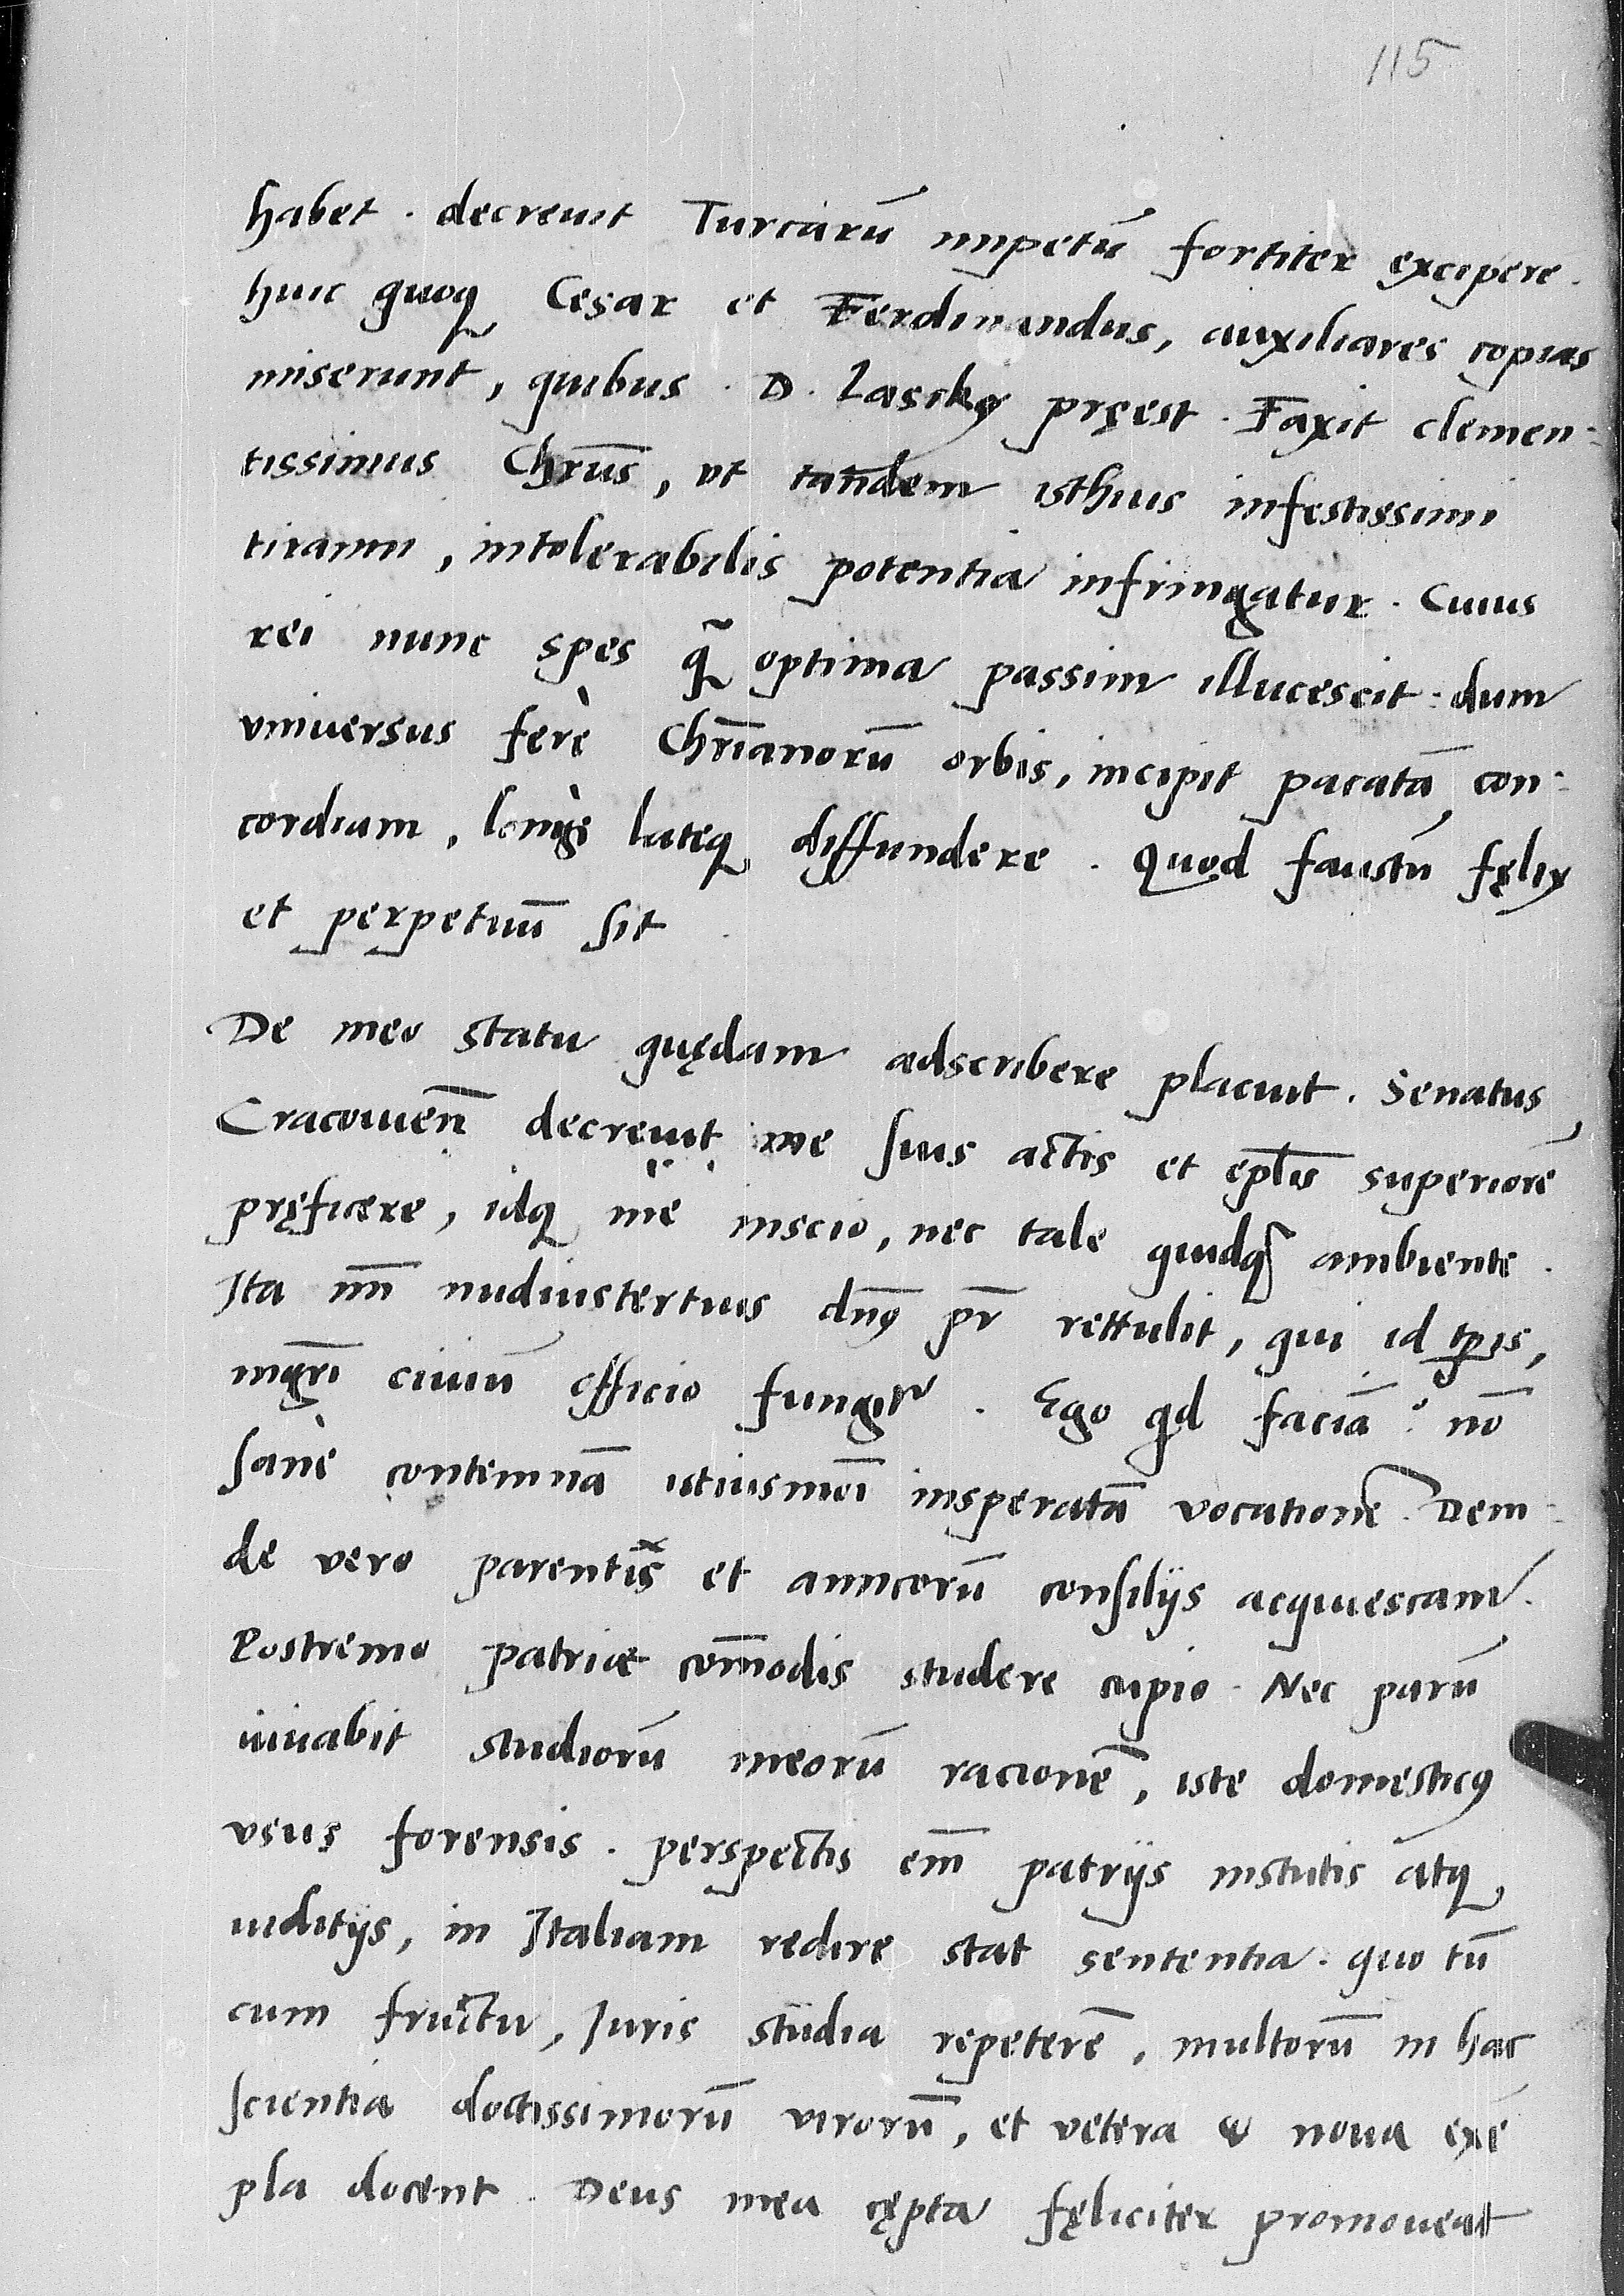 115
habet . decreuit Turcarū impetū fortiter excipere .
huic quoq Cęsar et Ferdinandus, auxiliares copias
miserunt, quibus . D . Lascky pręest . Faxit clemen:
tissimus Chrūs, vt tandem isthius infestissimi
tiranni, intolerabilis potentia infringatur . Cuius
rei nunc spes q̃ optima passim illucescit : dum
vniuersus ferè Chrīanorū orbis, incipit pacatā con:
cordiam, longè lateq diffundere . Quod faustū fęlix
et perpetuū sit .
De meo statu quędam adscribere placuit . Senatus
Cracouien̄ decreuit me suis actis et epl̄is superiorē
pręficere, idq me inscio, nec tale quidq̃ ambiente .
Ita nn̄ nudiustertius dn̄s pr̄ rettulit, qui id tp̄is,
mgr̄i ciuiū officio fungit͛ . Ego qd faciā ? nō
sanè contemnā istiusmōi insperatā vocationē . Dein:
de vero parentis et amicorū consilijs acquiescam .
Postremo patriæ com̄odis studere cupio . Nec parū
iuuabit studiorū meorū racionē, iste domesticꝰ
vsus forensis . perspectis em̄ patrijs institutis atq
iuditijs, in Italiam redire stat sententia . quo tū
cum fructu, Iuris studia repeterē, multorū in hac
scientia doctissimorū virorū, et vetera & noua exē
pla docent . Deus mea cępta fęliciter promoueat